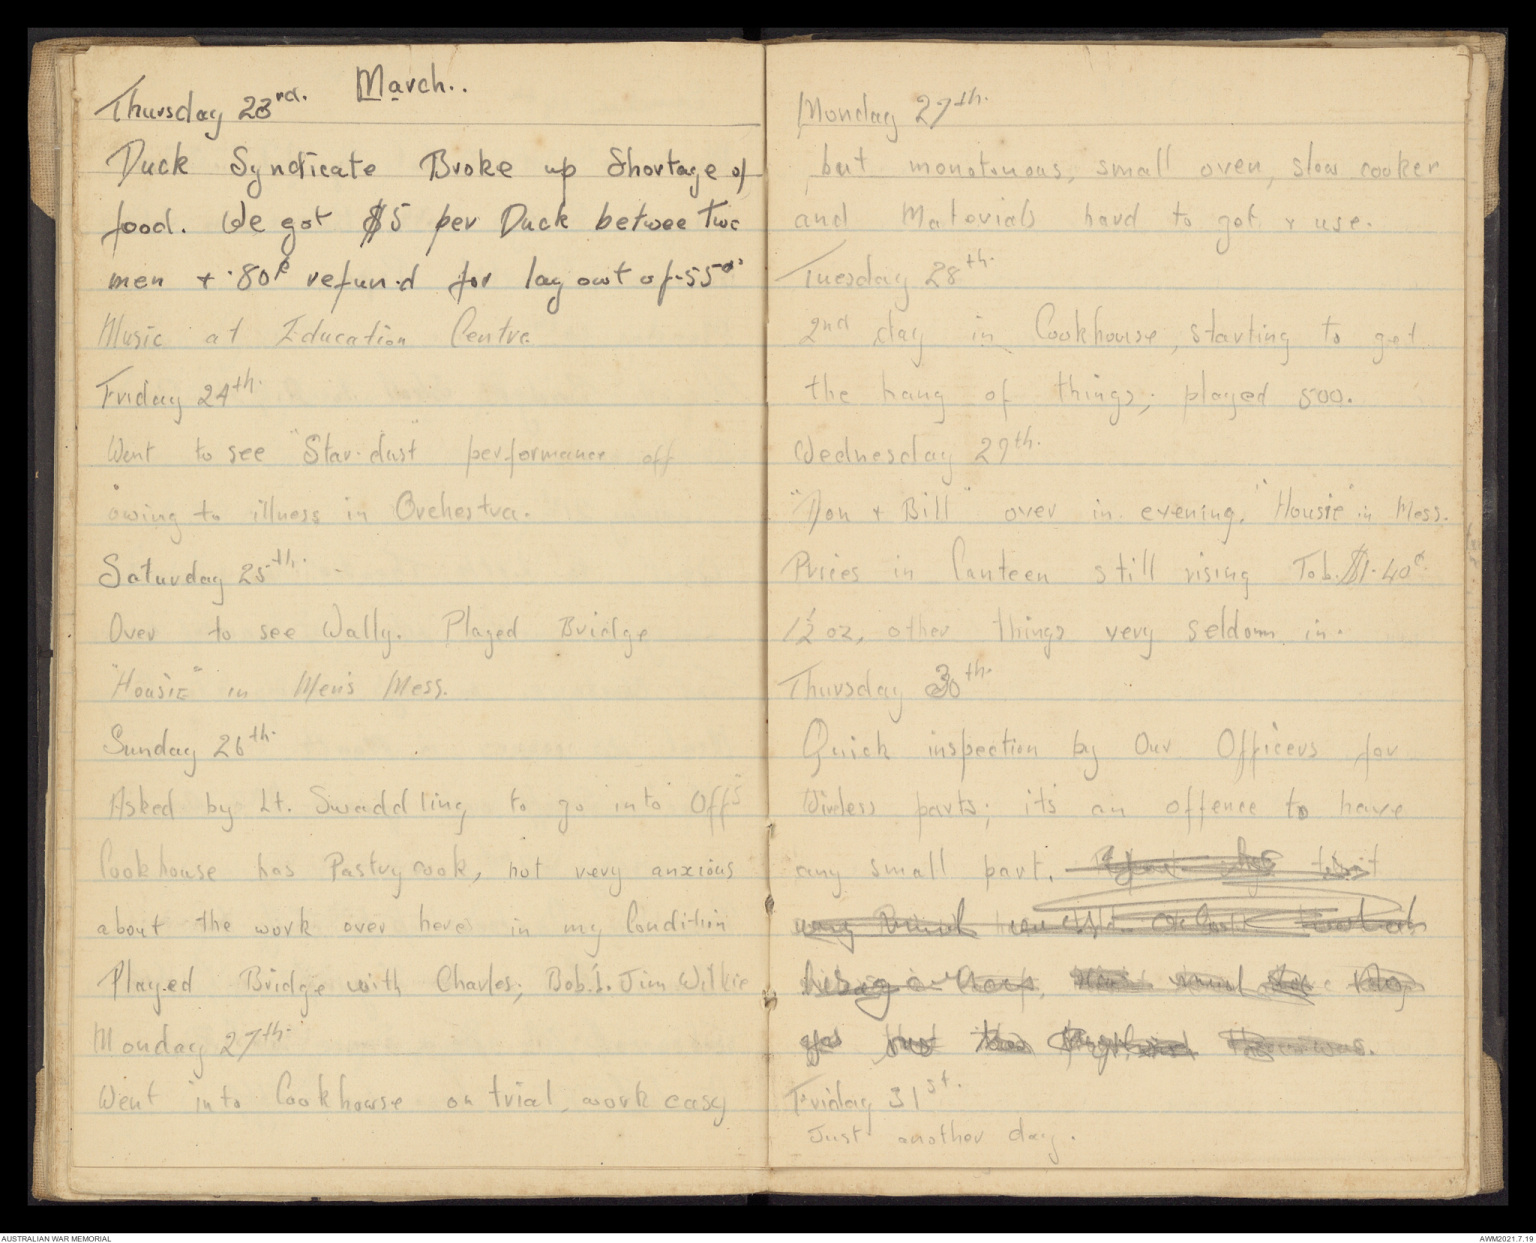 March..
Thursday 23rd.
Duck Syndicate Broke up Shortage of
food. We got $5 per Duck betwee two
men + .80¢ refund for lay out of .55¢
Music at Education Centre
Friday 24th.
Went to see "Star-dust" performance off
owing to illness in Orchestra.
Saturday 25th.
Over to see Wally. Played Bridge
"Housie" in Men's Mess.
Sunday 26th.
Asked by Lt. Swaddling to go into Off's
Cookhouse has Pastrycook, not very anxious
about the work over here in my Condition
Played Bridge with Charles, Bob.S. Jim Wilkie
Monday 27th.
Went into Cookhouse on trial, work easy
Monday 27th.
but monotonous, small oven, slow cooker
and Materials hard to get & use.
Tuesday 28th.
2nd day in Cookhouse, starting to get
the hang of things; played 500.
Wednesday 29th.
"Don + Bill" over in evening. "Housie" in Mess.
Prices in Canteen still rising Tob. $1.40¢
1½ oz, other things very seldom in.
Thursday 30th.
Quick inspection by Our Officers for
Wireless parts; it's an offence to have
any small part.
Friday 31st.
Just another day.
AUSTRALIAN WAR MEMORIAL
AWM2021.7.19